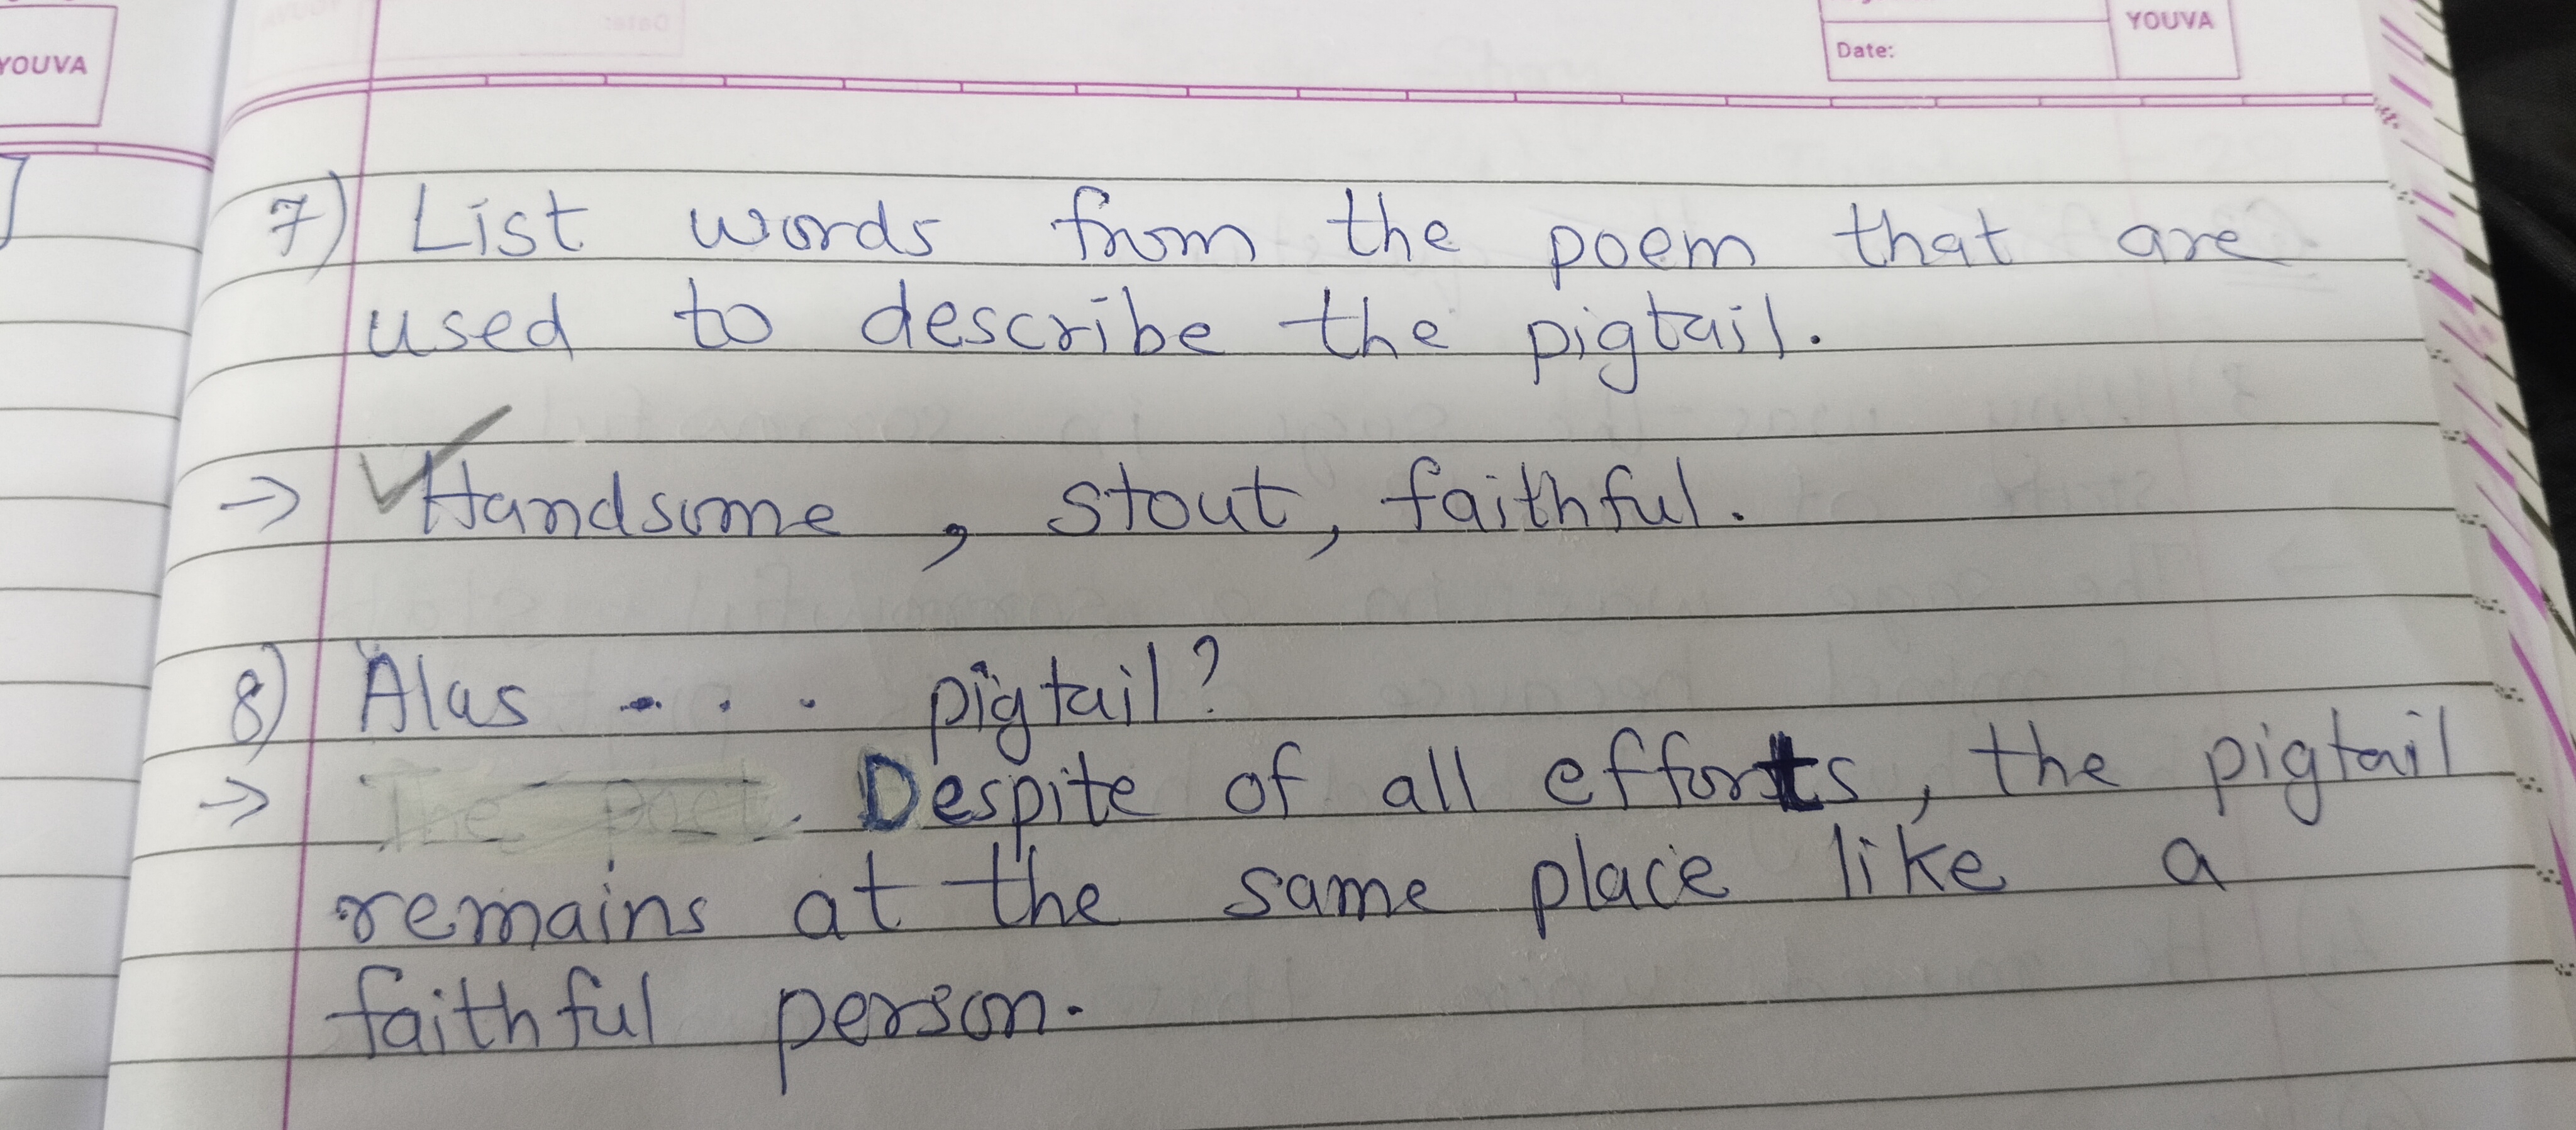 YOUVA
Date:
YOUVA
7) List words from the poem that are
used to describe the pigtail.
→ Handsome, stout, faithful.
8) Alas . . . pigtail?
→ Despite of all efforts, the pigtail
remains at the same place like a
faithful person.